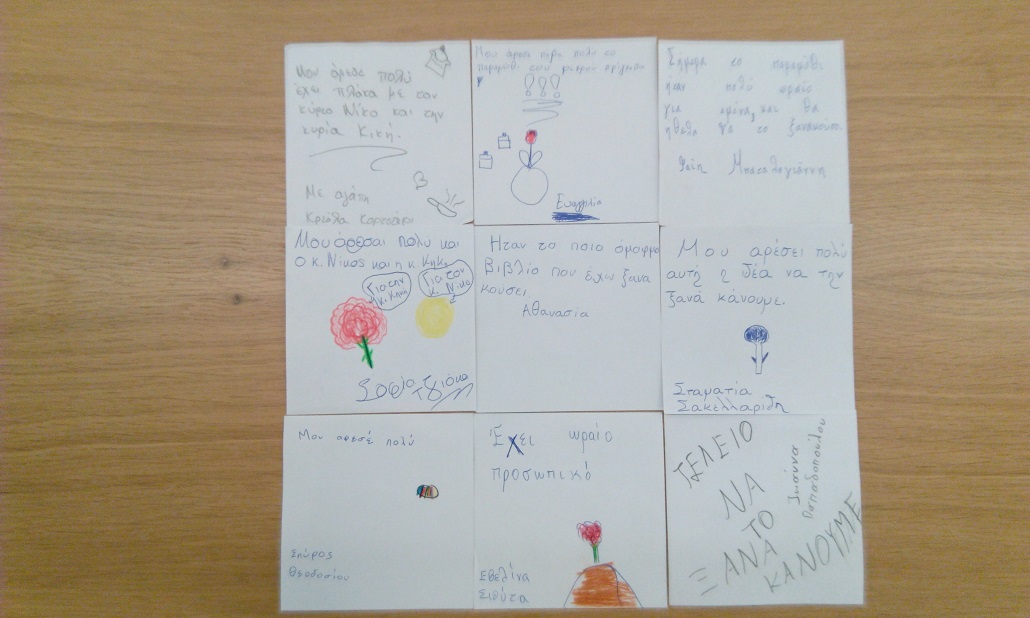 Μου άρεσε πολύ
έχει πλάκα με τον
κύριο Νίκο και την
κυρία Κική.
Με αγάπη
Μου άρεσε πάρα πολύ το
παραμύθι του μικρού πρίγκιπα
!!!
Ευαγγελία
Σήμερα το παραμύθι
ήταν πολύ ωραίο
για εμένα, και θα
ήθελα να το ξανακούσω.
Φαίη
Μου άρεσαι πολυ και
ο κ. Νίκος και η κ. Κηκι
Για την
κ. Κηκι
Για τον
κ. Νίκο
Σοφία Τζιόκα
Ηταν το ποιο όμορφο
Βιβλίο που έχω ξανα
κουσει
Αθανασία
Μου αρέσει πολύ
αυτή η ιδέα να την
ξανά κάνουμε.
Σταματία
Σακελλαρίδη
Μου αρεσέ πολύ
Σπύρος
Θεοδοσίου
Έχει ωραίο
προσωπικό
Εβελίνα
ΤΕΛΕΙΟ
ΝΑ
ΤΟ
ΞΑΝΑ
ΚΑΝΟΥΜΕ
Ιωάννα
Παπαδοπούλου